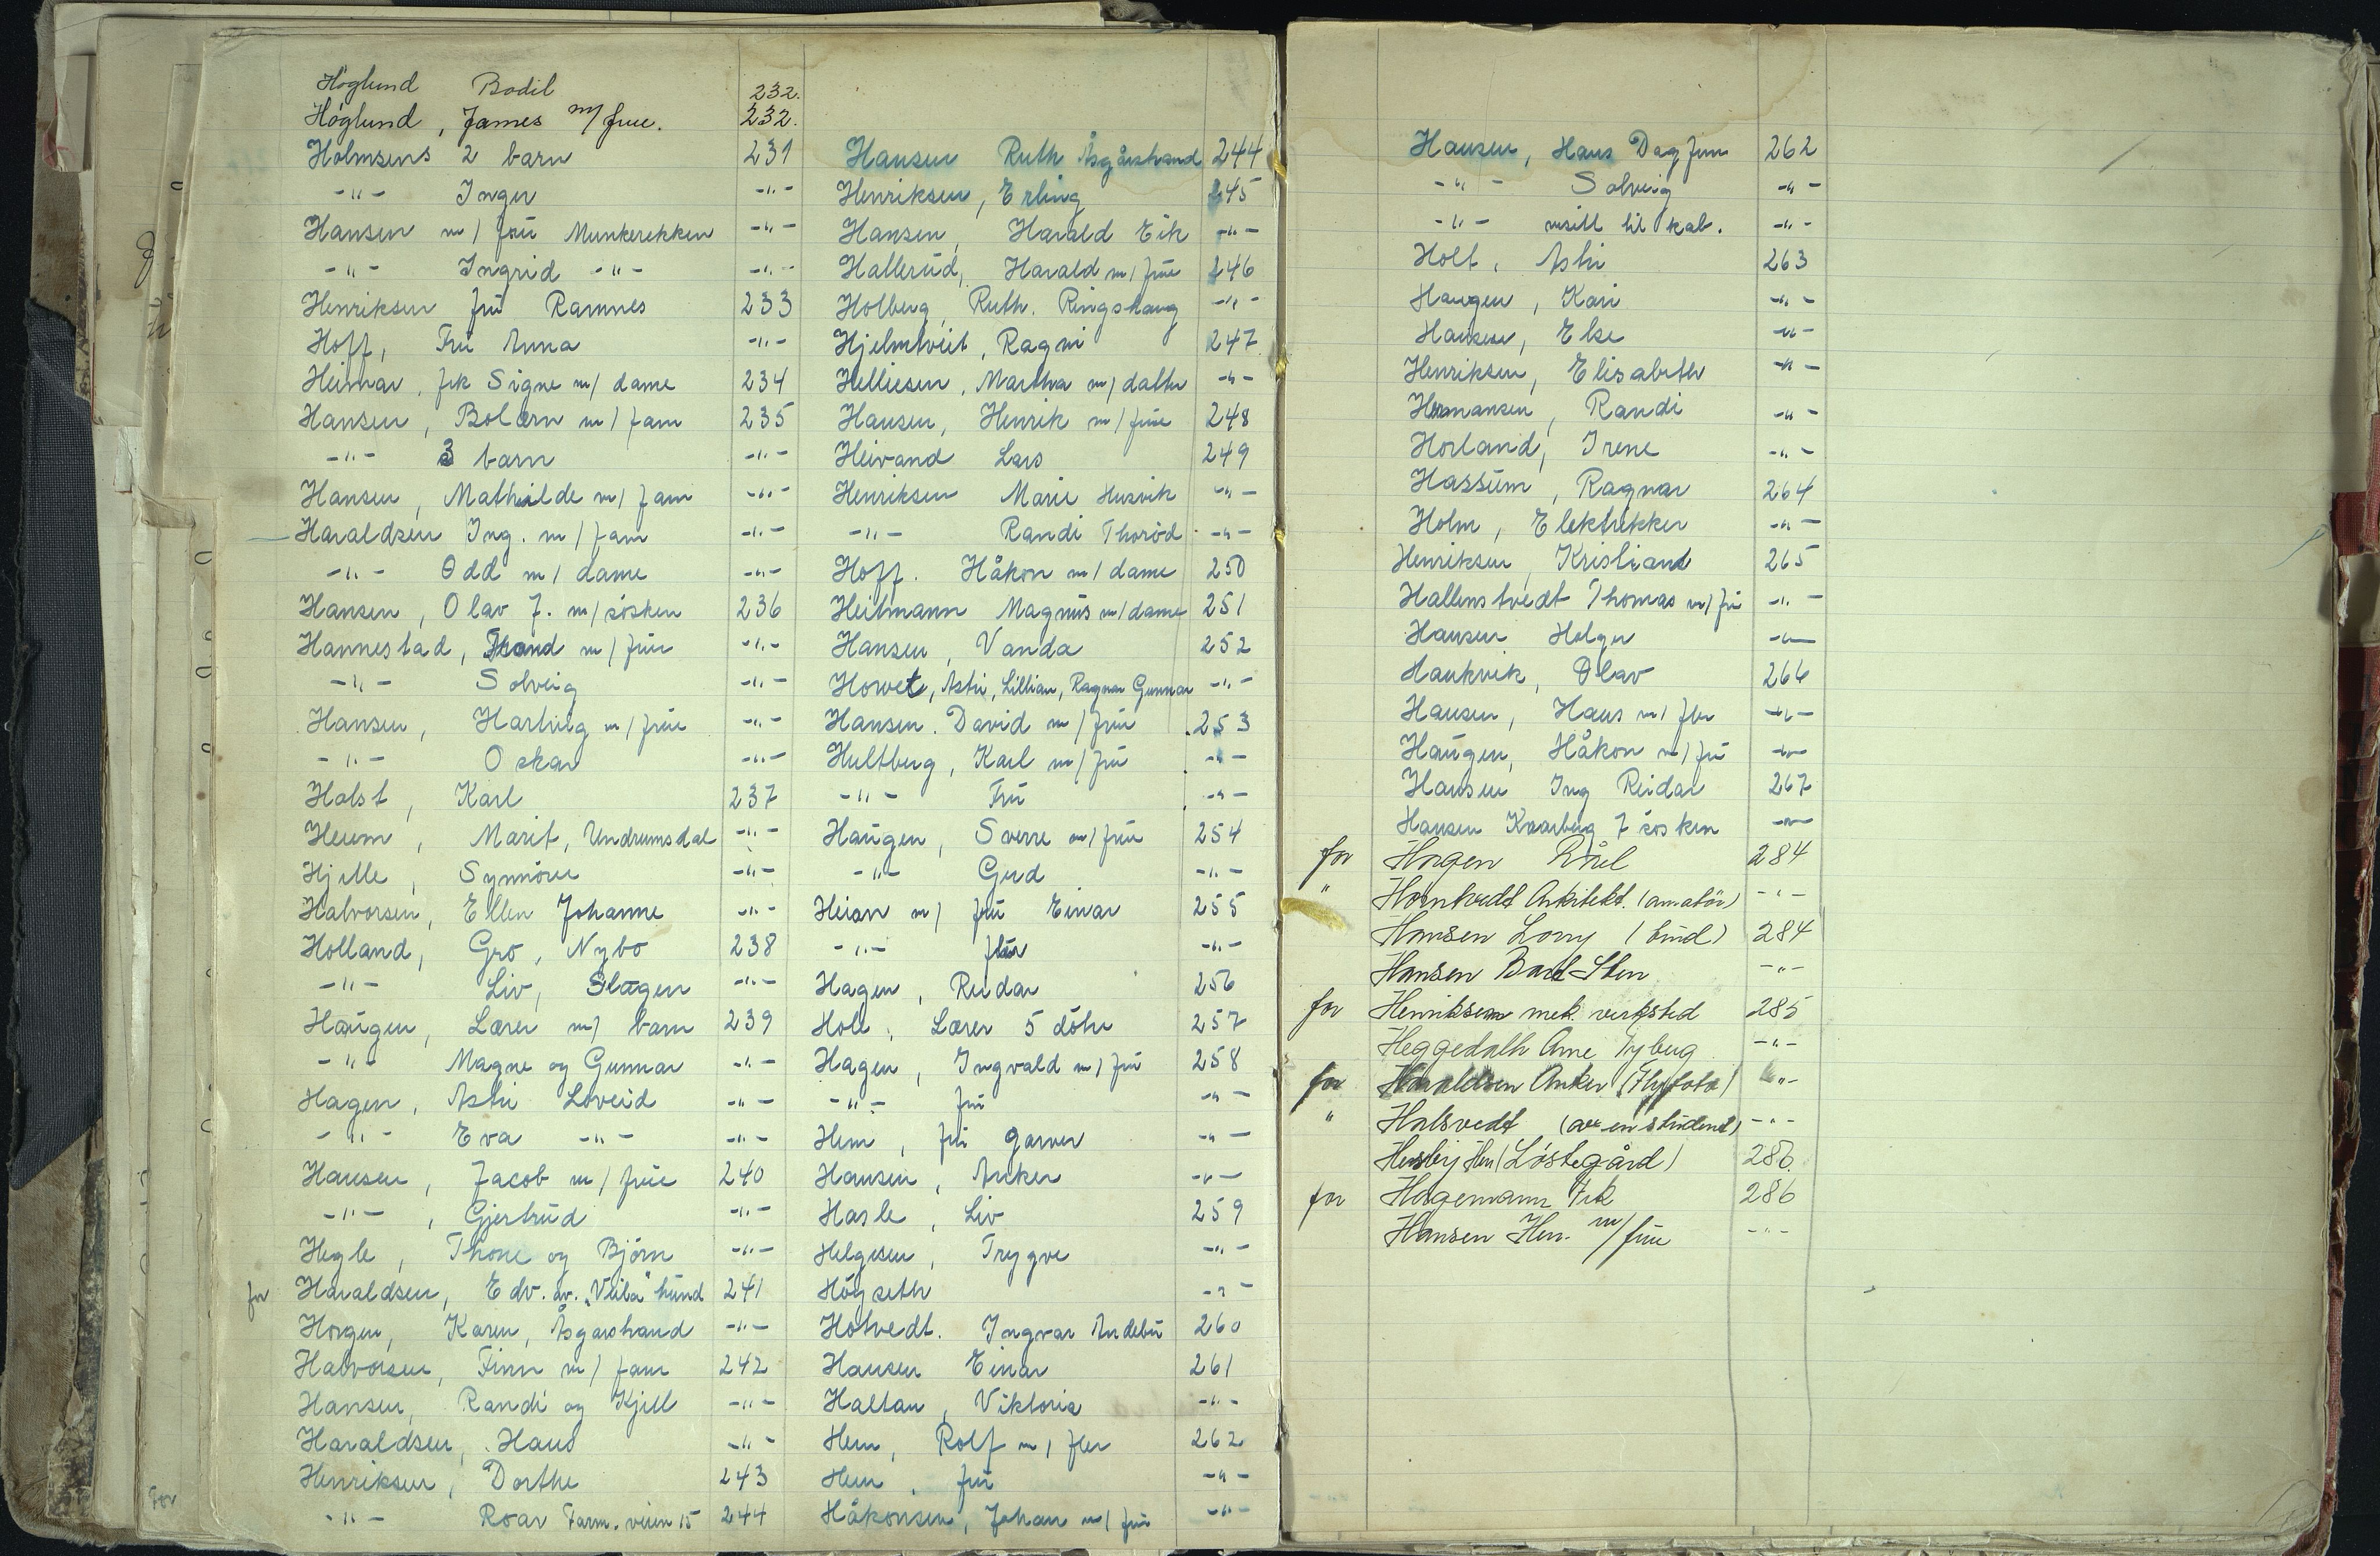 Höglund Bodil 232.
Höglund, James m/ frue. 232.
Holmsens 2 barn 231
-"- Inger -"-
Hansen m/ frü Munkerekken -"-
-"- Ingrid -"- -"-
Henriksen frü Ramnes 233
Hoff, Frü Anna -"-
Heimar, frk Signe m/ dame 234
Hansen, Bolærn m/ fam 235
-"- 3 barn -"-
Hansen, Mathilde m/ fam -"-
Haraldsen Ing. m/ fam -"-
-"- Odd m/ dame -"-
Hansen, Olav 7. m/ sösken 236
Hannestad, Trond m/ früe -"-
-"- Solveig -"-
Hansen, Hartvig m/ früe -"-
-"- Oskar -"-
Holst, Karl 237
Heum, Marit, Undrumsdal -"-
Hjelle, Synnöve -"-
Halvorsen, Ellen Johanne -"-
Holland, Gro, Nybo 238
-"- Liv, Slagen -"-
Haügen, Lærer m/ barn 239
-"- Magne og Gunnar -"-
Hagen, Astri Löveid -"-
-"- Eva -"- -"-
Hansen, Jacob m/ früe 240
-"-, Gjertrüd -"-
Hegle, Thone og Björn -"-
for Haraldsen, Edv. av. "Veila" hund 241
Horgen, Karen, Åsgårstrand -"-
Halvorsen, Finn m/ fam 242
Hansen, Randi og Kjell -"-
Haraldsen, Hans -"-
Henriksen, Dorthe 243
-"- Roar Farm. veien 15 244
Hansen Ruth Åsgårstrand 244
Henriksen, Erling 245
Hansen, Harald Eik -"-
Hallerüd, Harald m/ früe 246
Holberg, Ruth. Ringshaug -"-
Hjelmtveit, Ragni 247
Helliesen, Martha m/ datter -"-
Hansen, Henrik m/ früe 248
Heivand Lars 249
Henriksen Marie Husvik -"-
-"- Randi Thoröd -"-
Hoff. Håkon m/ dame 250
Heitmann Magnus m/ dame 251
Hansen, Vanda 252
Horvet, Astri, Lillian, Ragnar Gunnar -"-
Hansen. David m/ früe 253
Hultberg, Karl m/ frü -"-
-"- Frü -"-
Haügen, Sverre m/ früe 254
-"- Gerd -"-
Heian m/ früe Einar 255
-"- -"-
Hagen, Reidar 256
Holt, Lærer 5 dötre 257
Hagen, Ingvald m/ frü 258
-"- frü -"-
Hem, frü garver -"-
Hansen, Anker -"-
Hasle, Liv 259
Helgesen, Trygve -"-
Högseth -"-
Hotvedt. Ingvar Andebü 260
Hansen Einar 261
Haltan, Viktoria -"-
Hem, Rolf m/ fler 262
Hem, frü -"-
Håkonsen, Johan m/ frü -"-
Hansen, Hans Dagfinn 262
-"- Solveig -"-
-"- visitt til kab. -"-
Holt, Astri 263
Haugen, Kari -"-
Hansen, Else -"-
Henriksen, Elisabeth -"-
Hermansen, Randi -"-
Horland, Irene -"-
Hassüm, Ragnar 264
Holm, Elektrikker -"-
Henriksen, Kristian 265
Hallenstvedt Thomas m/ frü -"-
Hansen Holger -"-
Haukvik, Olav 266
Hansen, Hans m/ fler -"-
Haügen, Håkon m/ frü -"-
Hansen Ing Reidar 267
Hansen Kaarberg 7 sösken -"-
for Horgen 284
" Horntvedt Arkitekt. (amatör) -"-
Hansen Lorry (hund) 284
Hansen Bard-Sten -"-
for Henriksen mek. verksted 285
Heggedalh Arne Tyberg -"-
for Haraldsen Anker (Flyfoto) -"-
" Halsvedt (av en student) -"-
(Löstegård) 286.
for Hagemann Frk 286
Hansen Hen. m/ früe -"-
for